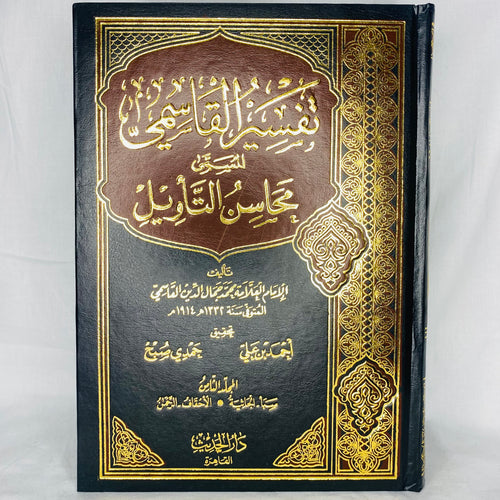 تفسير القاسمي
المسمى
محاسن التأويل
تأليف
الإمام العلامة محمد جمال الدين القاسمي
المتوفى سنة ١٣٣٢هـ ١٩١٤م
تحقيق
أحمد بن علي حمدي صبح
المجلد الثامن
سبأ - الجاثية • الأحقاف - المزمل
دار الحديث
القاهرة